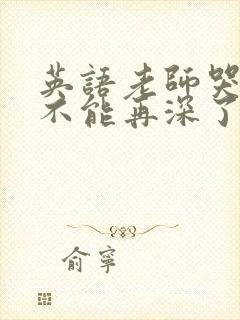 英語老師哭
不能再深了
俞寧